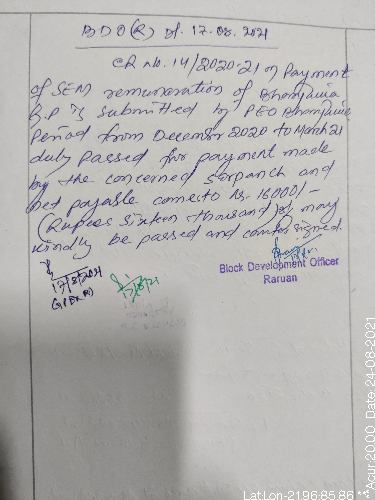 BDO(R) Df. 17.08.2021
CR No. 14/2020-21 of Payment
of SEM remuneration of Bhanjauia
G.P is submitted by PEO Bhanjauia
Period from December 2020 to March 21
duly passed for payment made
by the concerned sarpanch and
net payable comes to Rs. 16000/-
(Rupies Sixteen thousand) of may
kindly be passed and counter signed.
17/8/2021
17/8/21
Block Development Officer
Raruan
Lat:Lon-21.96:85.86 *** Acur 2000, Date: 24-08-2021